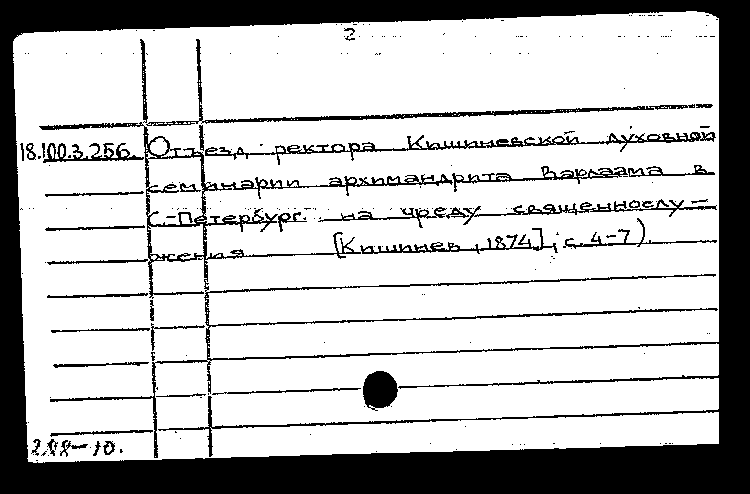 2
18.100.3.256. Отъезд ректора Кишиневской духовной
семинарии архимандрита Варлаама в
С.-Петербург. на чреду священнослу-
жения [Кишинев, 1874], с. 4-7).
288-10.